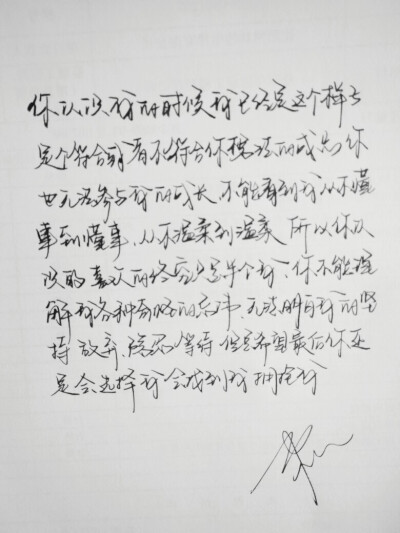 你认识我的时候我已经是这个样子
是个符合或者不符合你想法的成品 你
也无法参与我的成长 不能看到我从不懂
事到懂事,从不温柔到温柔 所以你认
识的喜欢的终究只是半个我,你不能理
解我各种奇怪的忌讳 无法明白我的坚
持 放弃 等待 但是希望最后你还
是会选择我 会找到我 拥抱我